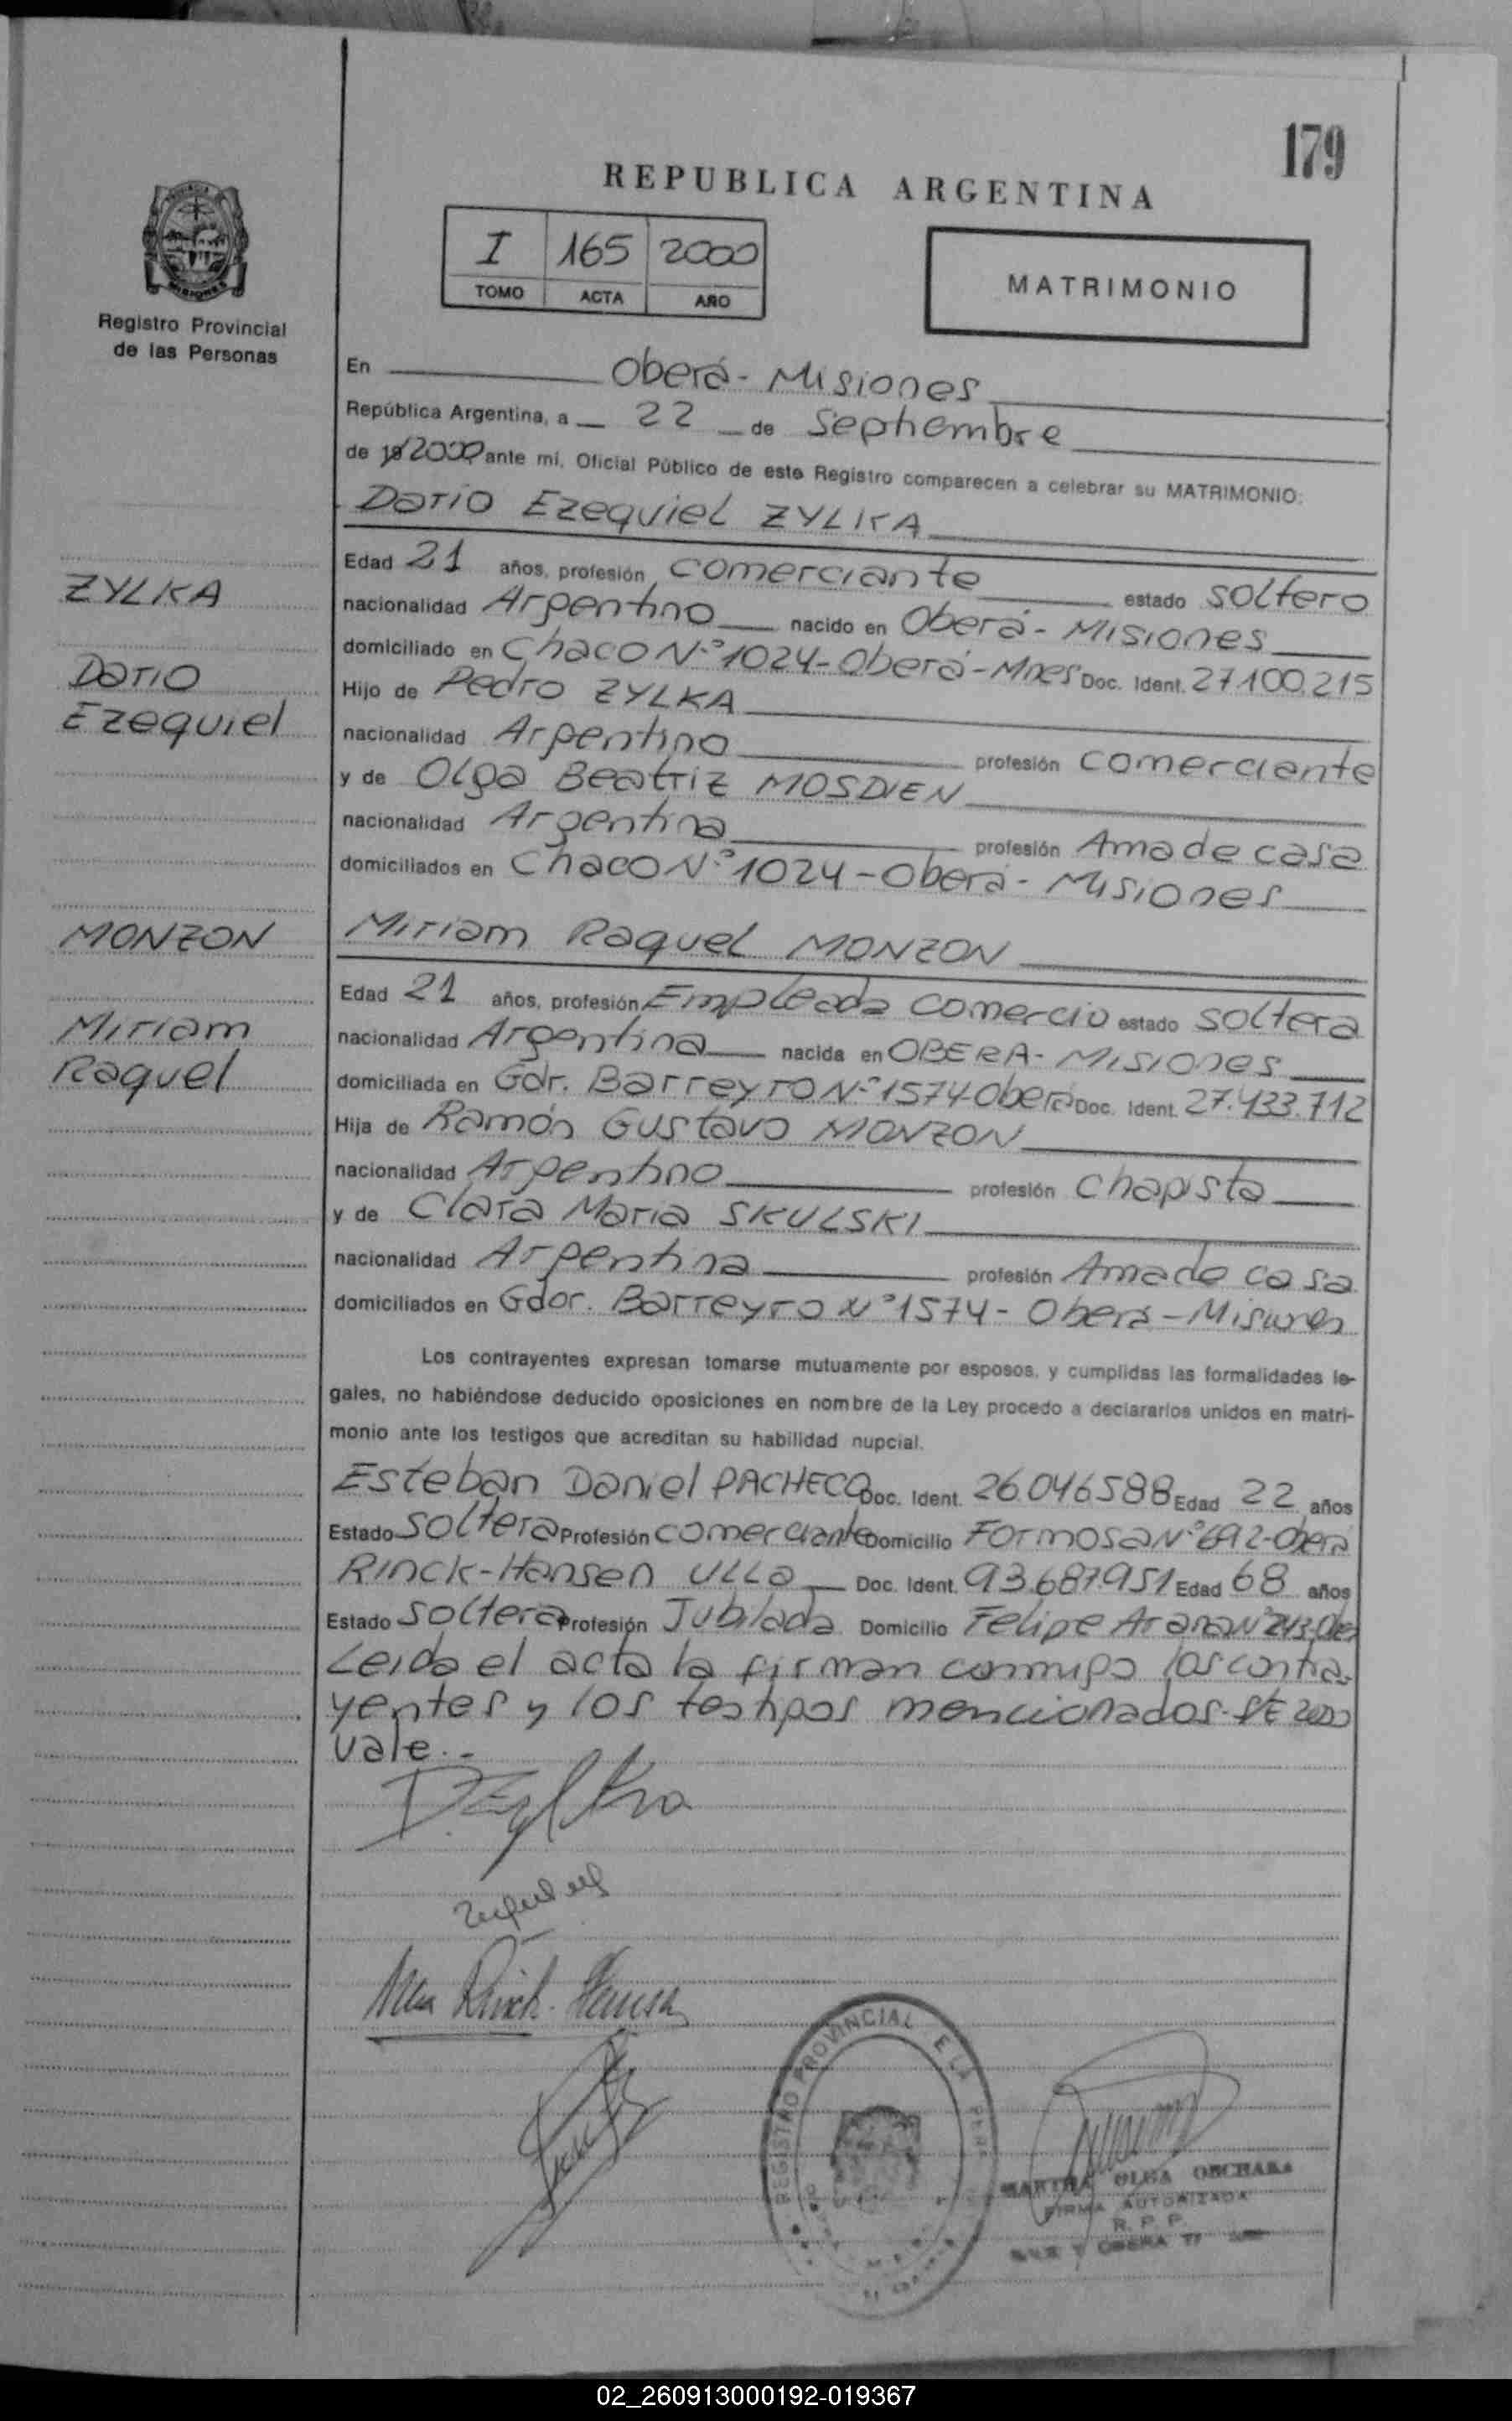 179
REPUBLICA ARGENTINA
I 165 2000
TOMO ACTA AÑO
MATRIMONIO
MISIONES
Registro Provincial
de las Personas
En Oberá - Misiones
República Argentina, a 22 de Septiembre
de 19 2000, ante mí, Oficial Público de este Registro comparecen a celebrar su MATRIMONIO:
Dario Ezequiel ZYLKA
Edad 21 años, profesión comerciante estado soltero
ZYLKA
nacionalidad Argentino nacido en Oberá - Misiones
domiciliado en Chaco N° 1024 - Oberá - Mnes Doc. Ident. 27.100.215
Dario
Hijo de Pedro ZYLKA
Ezequiel
nacionalidad Argentino profesión comerciante
y de Olga Beatriz MOSDIEN
nacionalidad Argentina profesión Ama de casa
domiciliados en Chaco N° 1024 - Oberá - Misiones
MONZON
Miriam Raquel MONZON
Edad 21 años, profesión Empleada Comercio estado soltera
Miriam
nacionalidad Argentina nacida en OBERA - Misiones
Raquel
domiciliada en Gdr. Barreyro N° 1574 Oberá Doc. Ident. 27.433.712
Hija de Ramón Gustavo MONZON
nacionalidad Argentino profesión Chapista
y de Clara Maria SKULSKI
nacionalidad Argentina profesión Ama de casa
domiciliados en Gdor. Barreyro N° 1574 - Oberá - Misiones
Los contrayentes expresan tomarse mutuamente por esposos, y cumplidas las formalidades le-
gales, no habiéndose deducido oposiciones en nombre de la Ley procedo a declararlos unidos en matri-
monio ante los testigos que acreditan su habilidad nupcial.
Esteban Daniel PACHECO Doc. Ident. 26.046.588 Edad 22 años
Estado soltera Profesión comerciante Domicilio Formosa N° 692 - Oberá
Rinck-Hansen Ulla Doc. Ident. 93.687.951 Edad 68 años
Estado soltera Profesión Jubilada Domicilio Felipe Arana N° 243
Leida el acta la firman conmigo los contra-
yentes y los testigos mencionados - S/E 2000
vale.-
Ulla Rinck-Hansen
REGISTRO PROVINCIAL
MARTHA OLGA
FIRMA AUTORIZADA
R. P. P.
OBERA
02_260913000192-019367